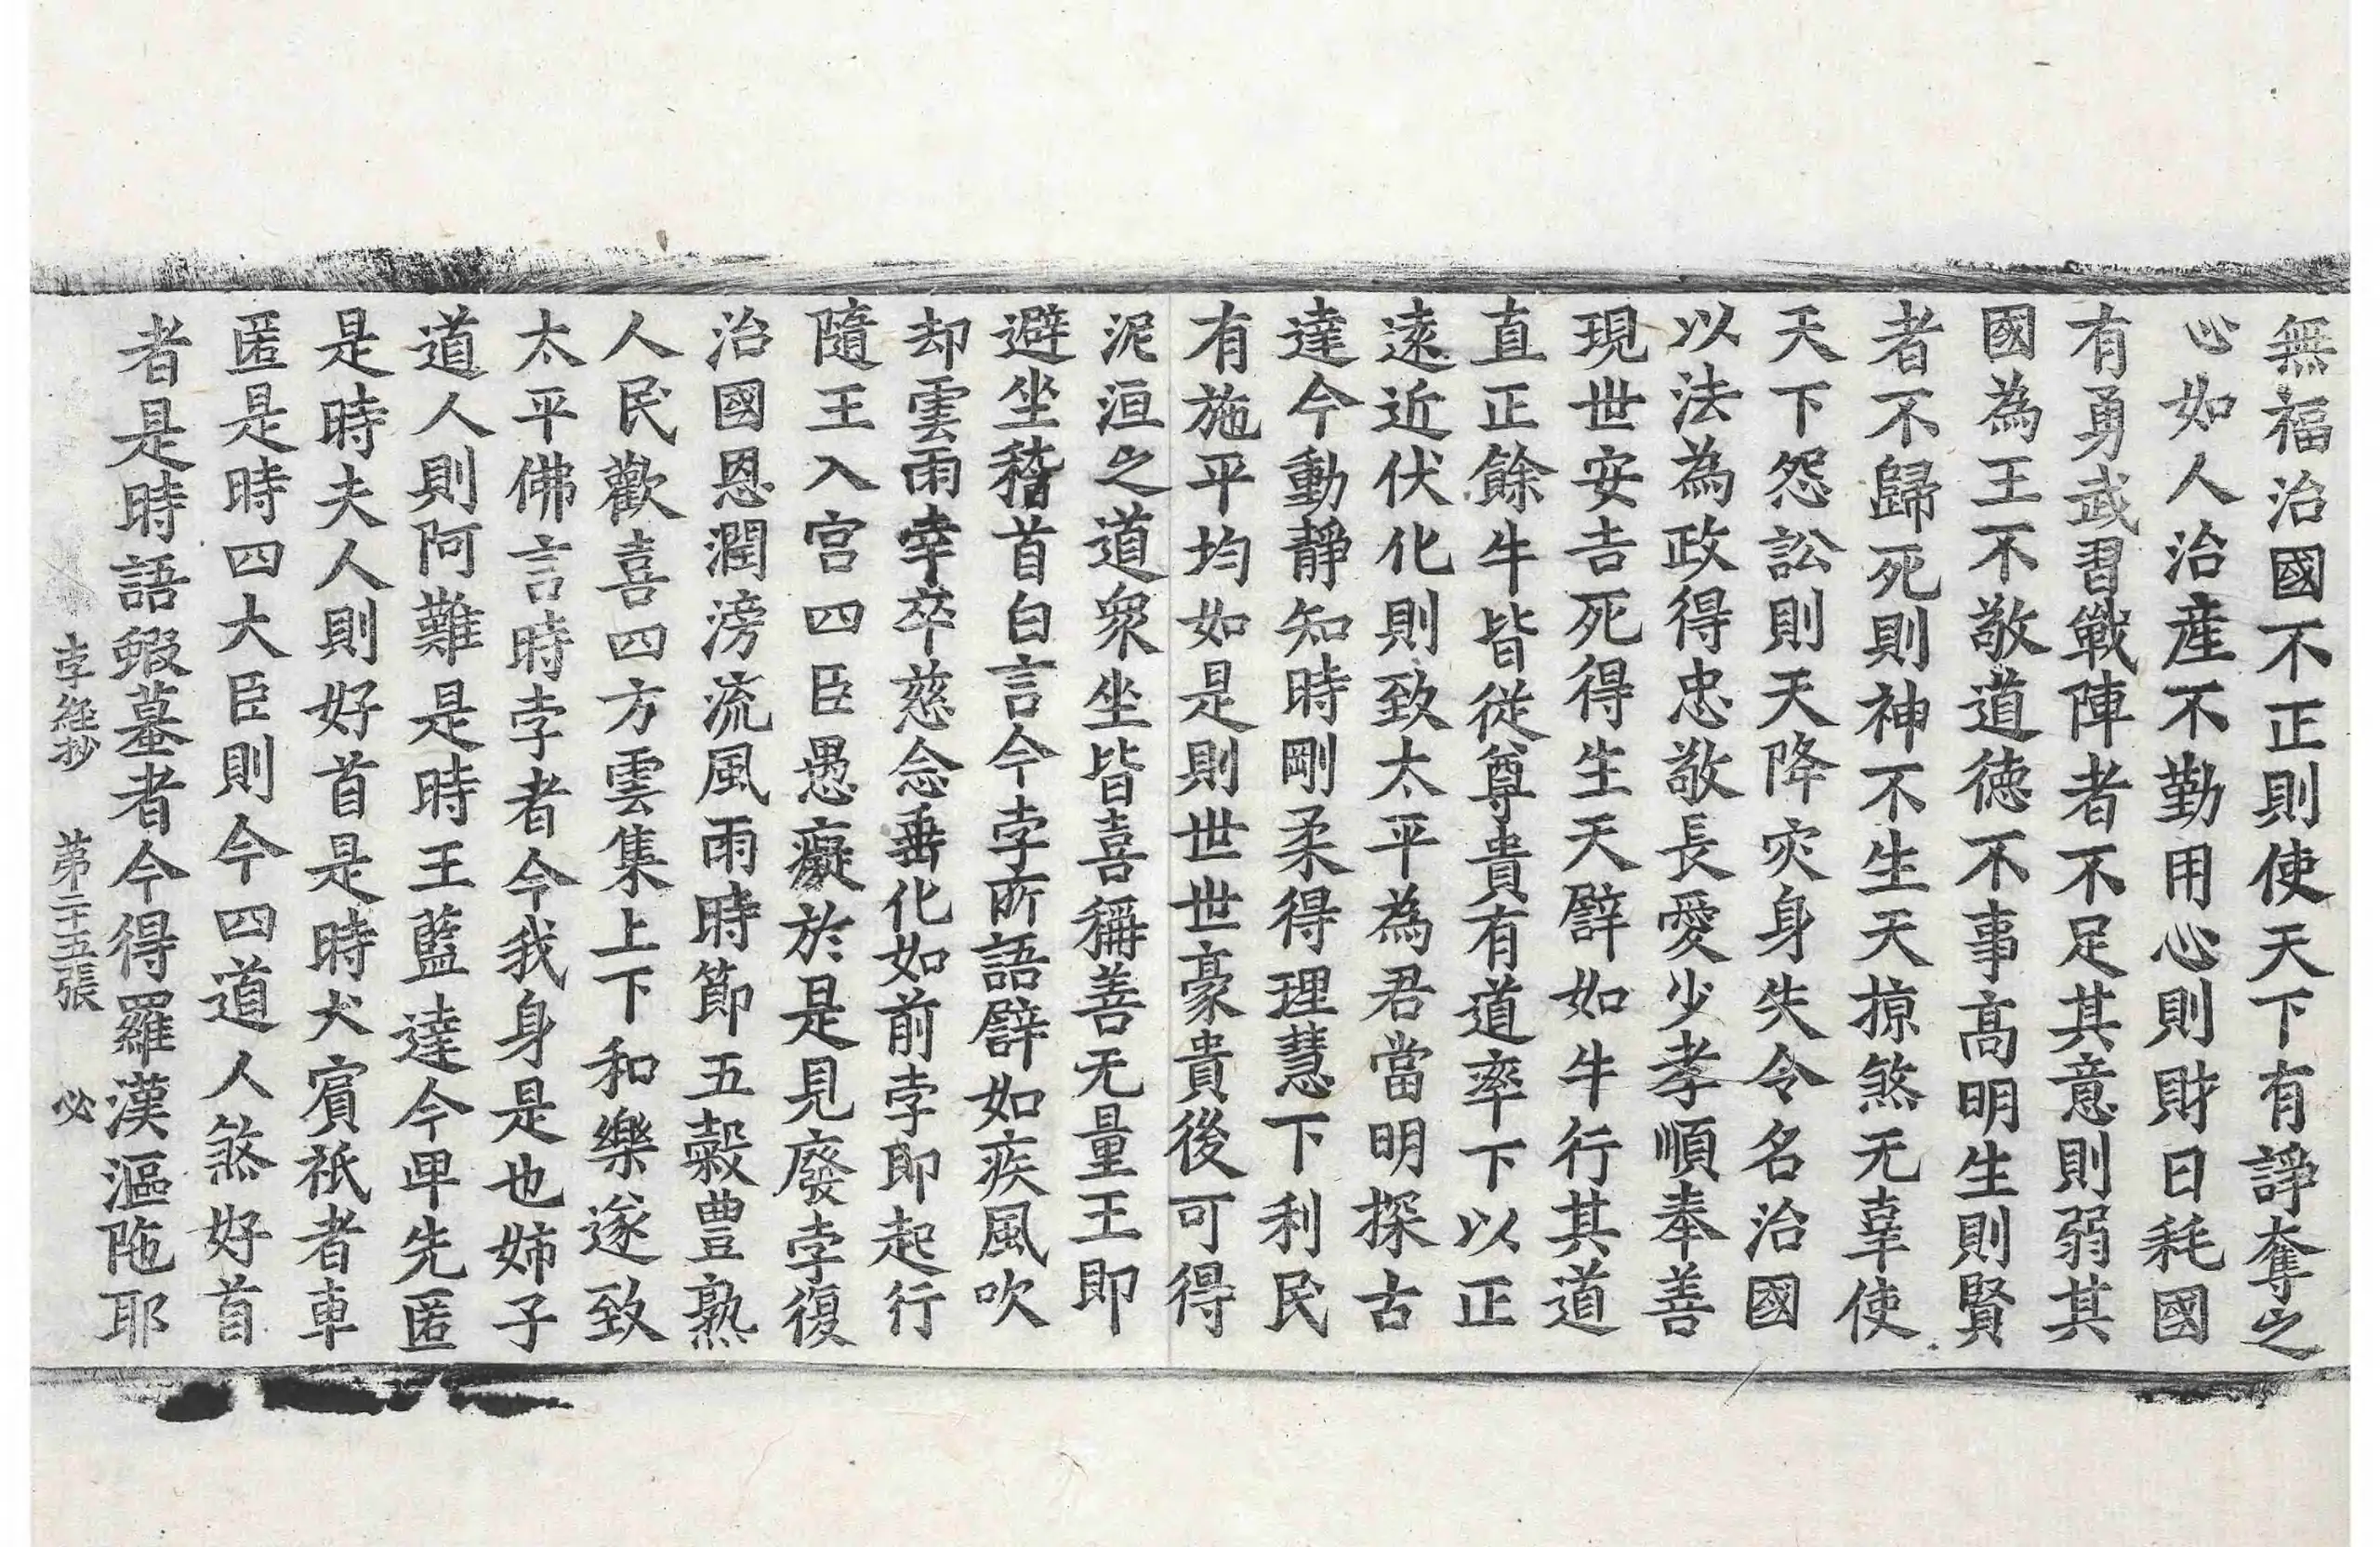 無福治國不正則使天下有諍奪之
心如人治產不勤用心則財日耗國
有勇武習戰陣者不足其意則弱其
國為王不敬道德不事髙明生則賢
者不歸死則神不生天掠煞无辜使
天下怨訟則天降灾身失令名治國
以法為政得忠敬長愛少孝順奉善
現世安吉死得生天譬如牛行其道
直正餘牛皆從尊貴有道率下以正
遠近伏化則致太平為君當明探古
達今動靜知時剛柔得理慧下利民
有施平均如是則世世豪貴後可得
泥洹之道衆坐皆喜稱善无量王即
避坐稽首白言今孛所語譬如疾風吹
却雲雨幸卒慈念垂化如前孛即起行
隨王入宮四臣愚癡於是見廢孛復
治國恩潤滂流風雨時節五穀豊熟
人民歡喜四方雲集上下和樂遂致
太平佛言時孛者今我身是也姉子
道人則阿難是時王藍達今卑先匿
是時夫人則好首是時犬賓祇者車
匿是時四大臣則今四道人煞好首
者是時語蝦蟇者今得羅漢漚陁耶
孛經抄 第二十五張 必